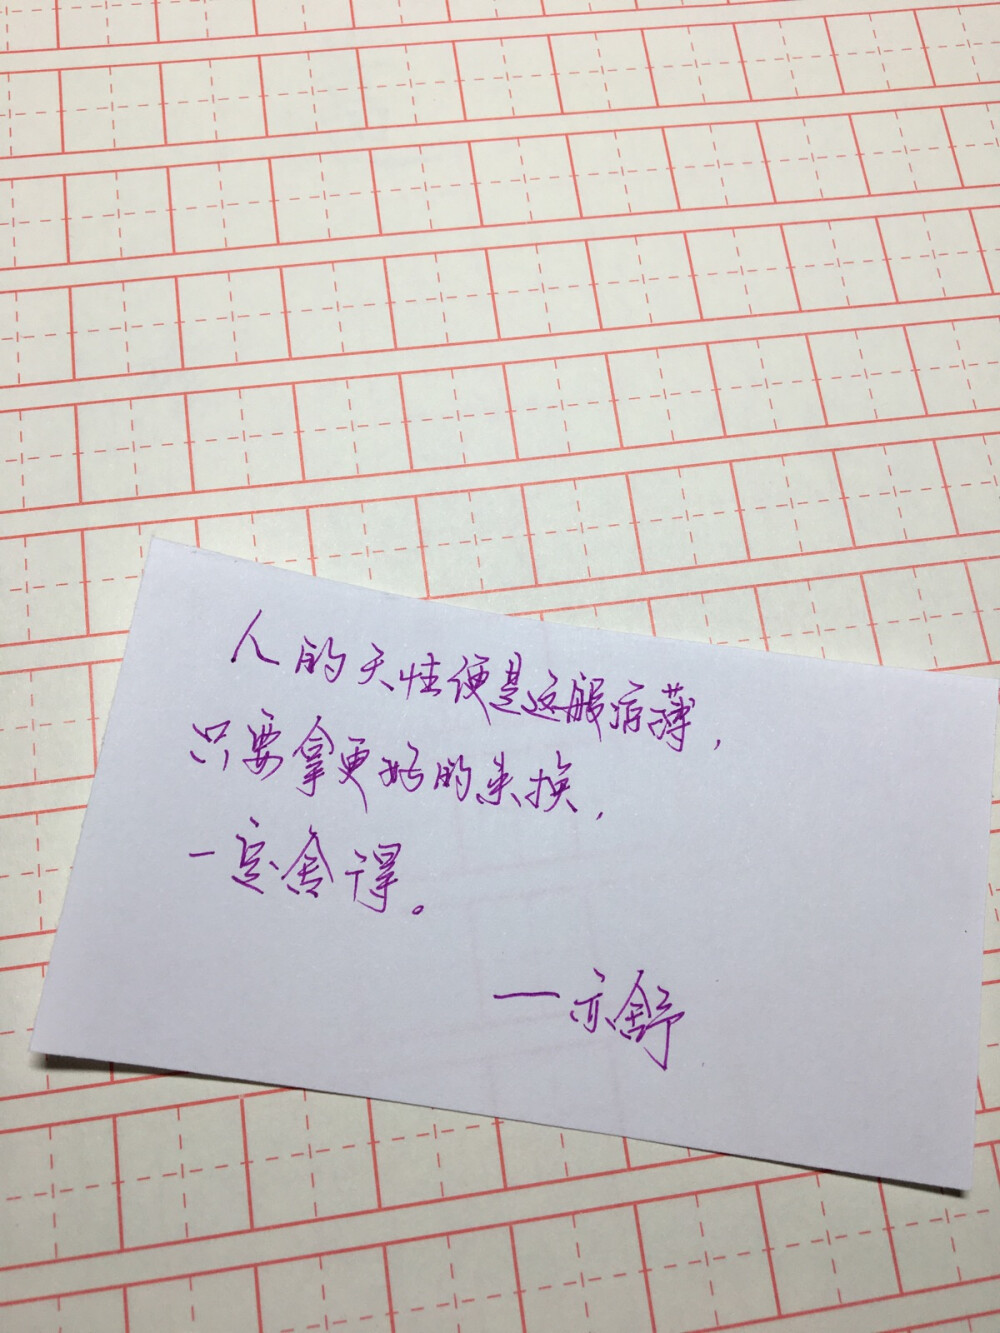 人的天性便是这般凉薄，
只要拿更好的来换，
一定舍得。
——亦舒